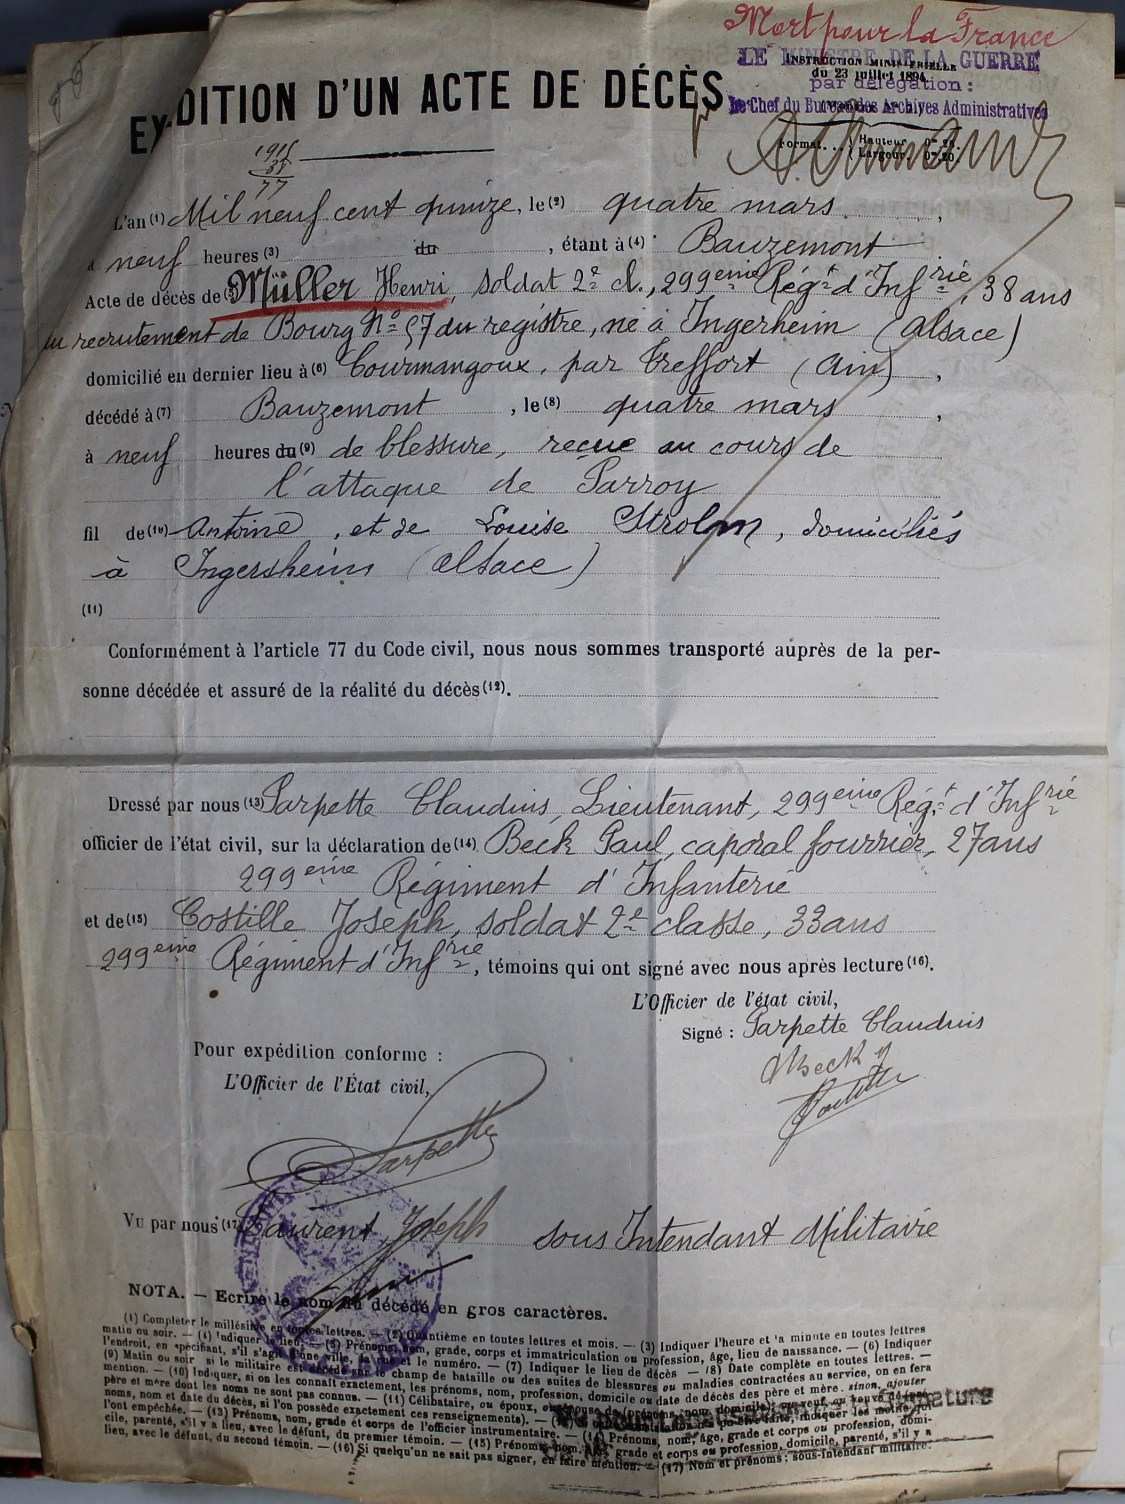 Mort pour la France
LE MINISTRE DE LA GUERRE
INSTRUCTION MINISTÉRIELLE
du 23 juillet 1894
par délégation :
Le Chef du Bureau des Archives Administratives
Format... Hauteur 0m
Largeur 0m 20
EXPÉDITION D'UN ACTE DE DÉCÈS
1915
38
77
L'an (1) Mil neuf cent quinze, le (2) quatre mars,
à neuf heures (3) du , étant à (4) Bauzemont
Acte de décès de (5) Müller Henri, soldat 2e cl., 299eme Régt d'Infrie, 38 ans
au recrutement de Bourg No 57 du registre, né à Ingerheim (Alsace)
domicilié en dernier lieu à (6) Courmangoux, par Treffort (Ain),
décédé à (7) Bauzemont, le (8) quatre mars,
à neuf heures du (9) de blessure, reçue au cours de
l'attaque de Parroy
fil de (10) Antoine, et de Louise Strolm, domiciliés
à Ingersheim (Alsace)
(11)
Conformément à l'article 77 du Code civil, nous nous sommes transporté auprès de la per-
sonne décédée et assuré de la réalité du décès (12).
Dressé par nous (13) Parpette Claudius, Lieutenant, 299eme Régt d'Infrie
officier de l'état civil, sur la déclaration de (14) Beck Paul, caporal fourrier, 27 ans
299eme Régiment d'Infanterie
et de (15) Costille Joseph, soldat 2e classe, 33 ans
299eme Régiment d'Infrie, témoins qui ont signé avec nous après lecture (16).
L'Officier de l'état civil,
Signé : Parpette Claudius
Beck
Costille
Pour expédition conforme :
L'Officier de l'État civil,
Parpette
Vu par nous (17) Laurent, Joseph sous Intendant Militaire
NOTA. — Ecrire le nom du décédé en gros caractères.
(1) Compléter le millésime en toutes lettres. — (2) Quantième en toutes lettres et mois. — (3) Indiquer l'heure et la minute en toutes lettres
matin ou soir. — (4) Indiquer le lieu. — (5) Prénoms, nom, grade, corps et immatriculation ou profession, âge, lieu de naissance. — (6) Indiquer
l'endroit, en spécifiant, s'il s'agit d'une ville, la rue et le numéro. — (7) Indiquer le lieu de décès — (8) Date complète en toutes lettres. —
(9) Matin ou soir si le militaire est décédé sur le champ de bataille ou des suites de blessures ou maladies contractées au service, on en fera
mention. — (10) Indiquer, si on les connaît exactement, les prénoms, nom, profession, domicile ou date de décès des père et mère. sinon, ajouter
père et mère dont les noms ne sont pas connus. — (11) Célibataire, ou époux, ou
noms, nom et date du décès, si l'on possède exactement ces renseignements). —
l'ont empêchée. — (13) Prénoms, nom, grade et corps de l'officier instrumentaire. — (14) Prénoms, nom, âge, grade et corps ou profession, domi-
cile, parenté, s'il y a lieu, avec le défunt, du premier témoin. — (15) Prénoms, nom, grade et corps ou profession, domicile, parenté, s'il y a
lieu, avec le défunt, du second témoin. — (16) Si quelqu'un ne sait pas signer, en faire mention. — (17) Nom et prénoms ; sous-intendant militaire.